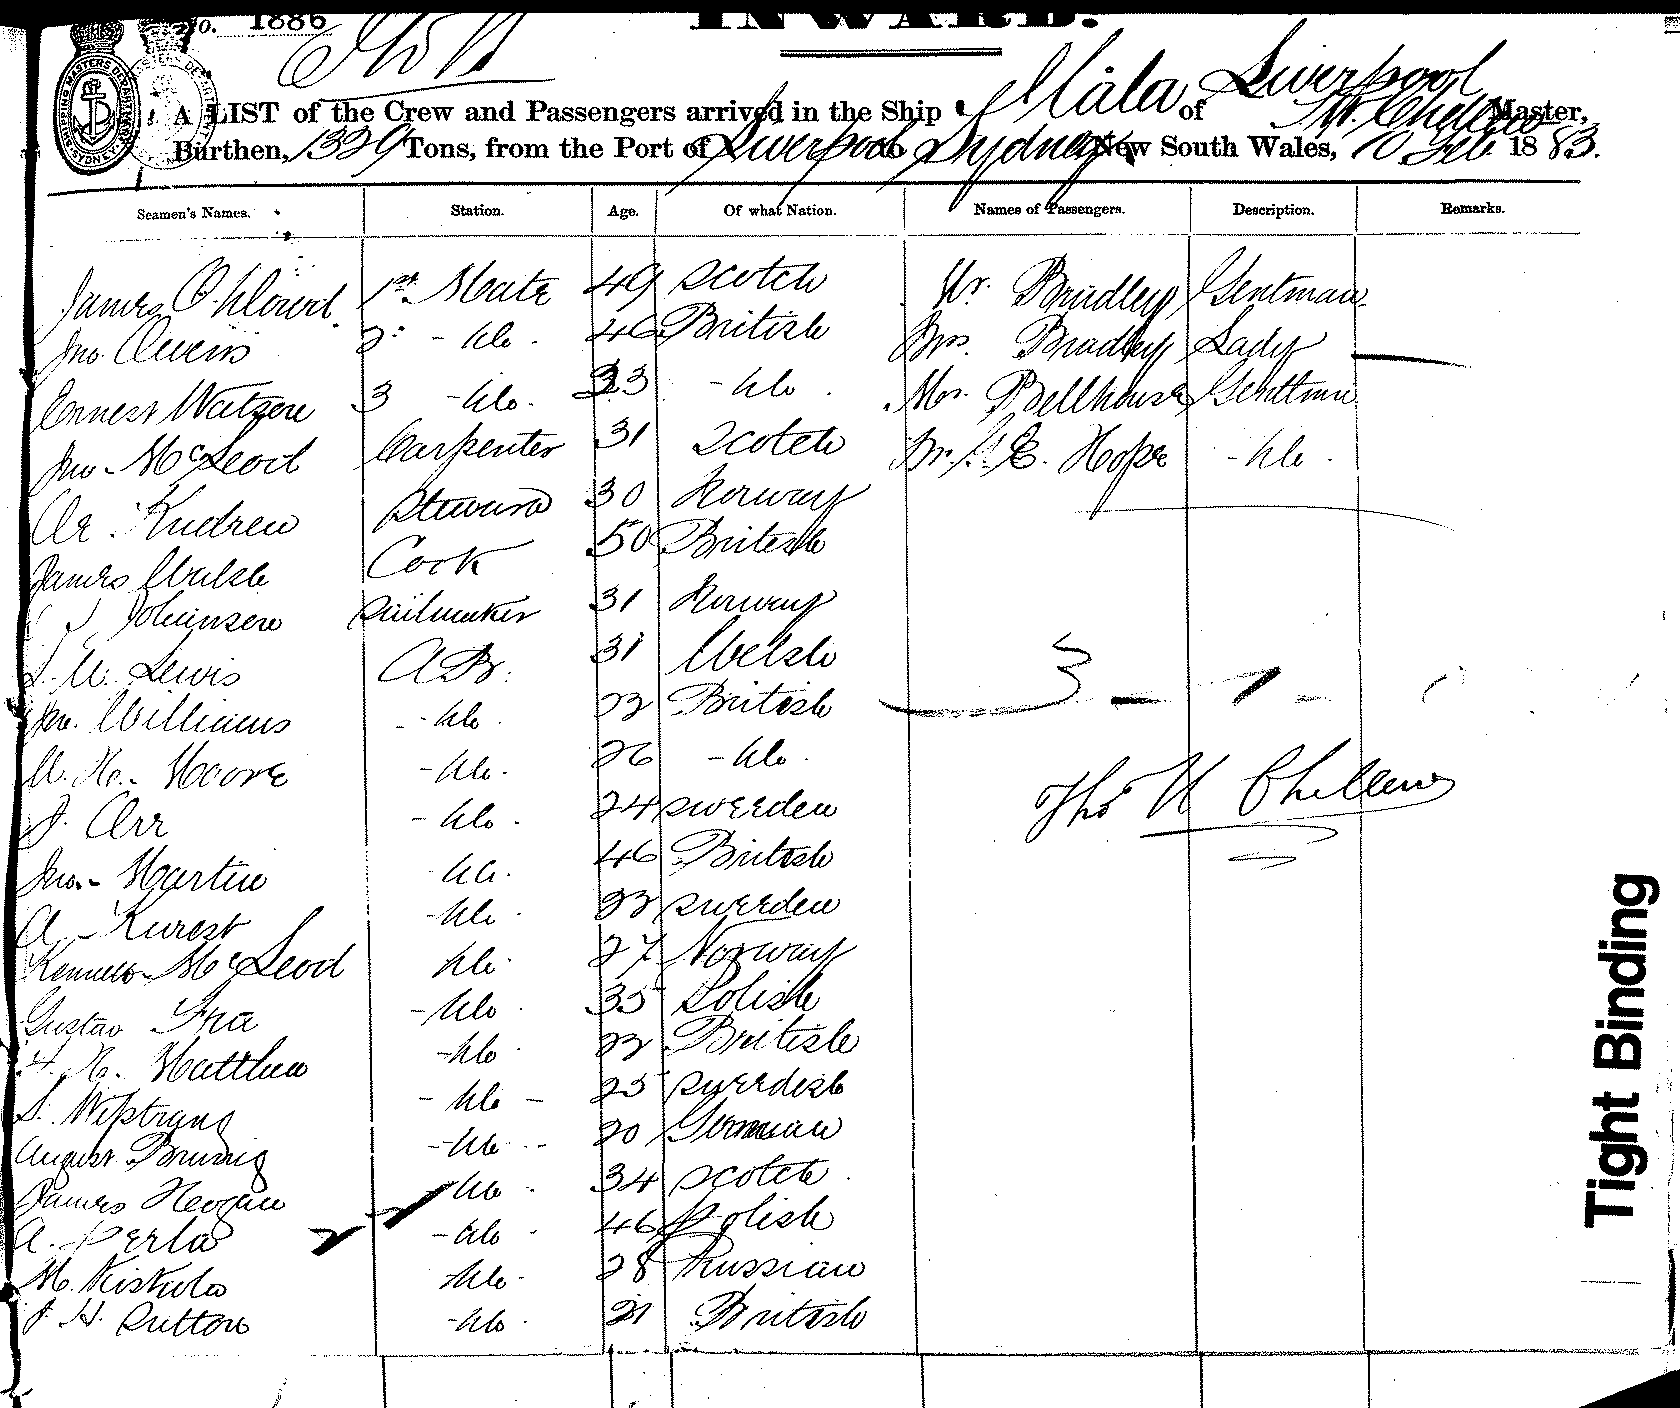 No. 1886
INWARD.
A LIST of the Crew and Passengers arrived in the Ship Mala of Liverpool Master,
Burthen, 1329 Tons, from the Port of Liverpool to Sydney New South Wales, 10 Feb 1883.
Seamen's Names. Station. Age. Of what Nation. Names of Passengers. Description. Remarks.
James 1st. Mate 49 Scotch Mr. Bradley Gentman
Jno. Owens 2: - do. 46 British Mrs. Bradley Lady
Ernest Watson 3 - do. 33 - do. Mr. Bellhouse Gentman
Jno McLeod Carpenter 31 Scotch Mr. E. Hope - do.
Steward 30 Norway
James Walsh Cook 50 British
Johansen Sailmaker 31 Norway
W. Lewis AB. 31 Welsh
Jno. Williams - do. 22 British
W. H. Moore - do. 26 - do.
J. Orr - do. 24 Sweeden
Jno. Martin do. 46 British
A. - do. 22 Sweeden
Kenneth McLeod do. 27 Norway
Gustav - do. 35 Polish
H. Matthew - do. 22 British
S. - do - 25 Sweedish
August Bruning - do - 20 German
James do. 34 Scotch
A. Perla - do 46 Polish
M. do. 28 Russian
J. H. Sutton - do. 21 British
3 - 1 -
Thos H Chellew
Tight Binding